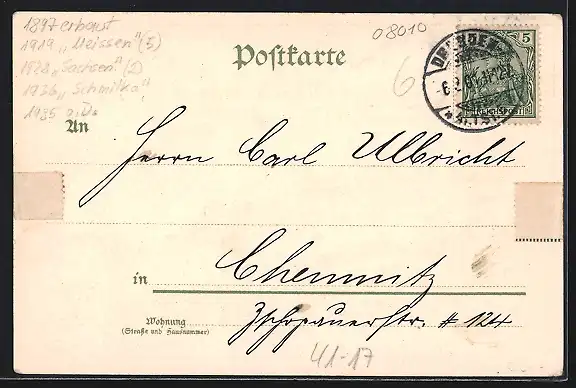 1897 erbaut
1919 „Meissen" (5)
1928 „Sachsen" (2)
1936 „Schmilka"
1985 a.D.
08010
Postkarte
6
5
DRESDEN
ALTST.
An
Herrn Carl Ulbricht
in Chemnitz
Wohnung
(Straße und Hausnummer)
Zschopauerstr. # 124
41-17